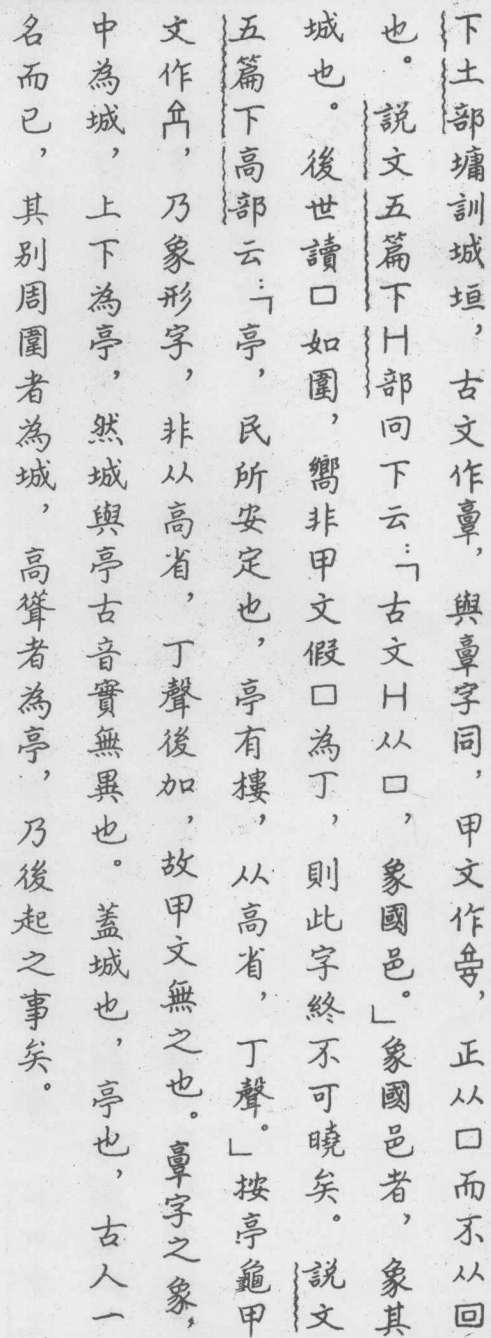 下土部墉訓城垣，古文作𩫖，與𩫖字同，甲文作，正从口而不从回
也。説文五篇下冂部冋下云：「古文冂从口，象國邑。」象國邑者，象其
城也。後世讀口如圍，嚮非甲文假口為丁，則此字終不可曉矣。説文
五篇下高部云：「亭，民所安定也，亭有樓，从高省，丁聲。」按亭龜甲
文作，乃象形字，非从高省，丁聲後加，故甲文無之也。𩫖字之象，
中為城，上下為亭，然城與亭古音實無異也。蓋城也，亭也，古人一
名而已，其別周圍者為城，高聳者為亭，乃後起之事矣。